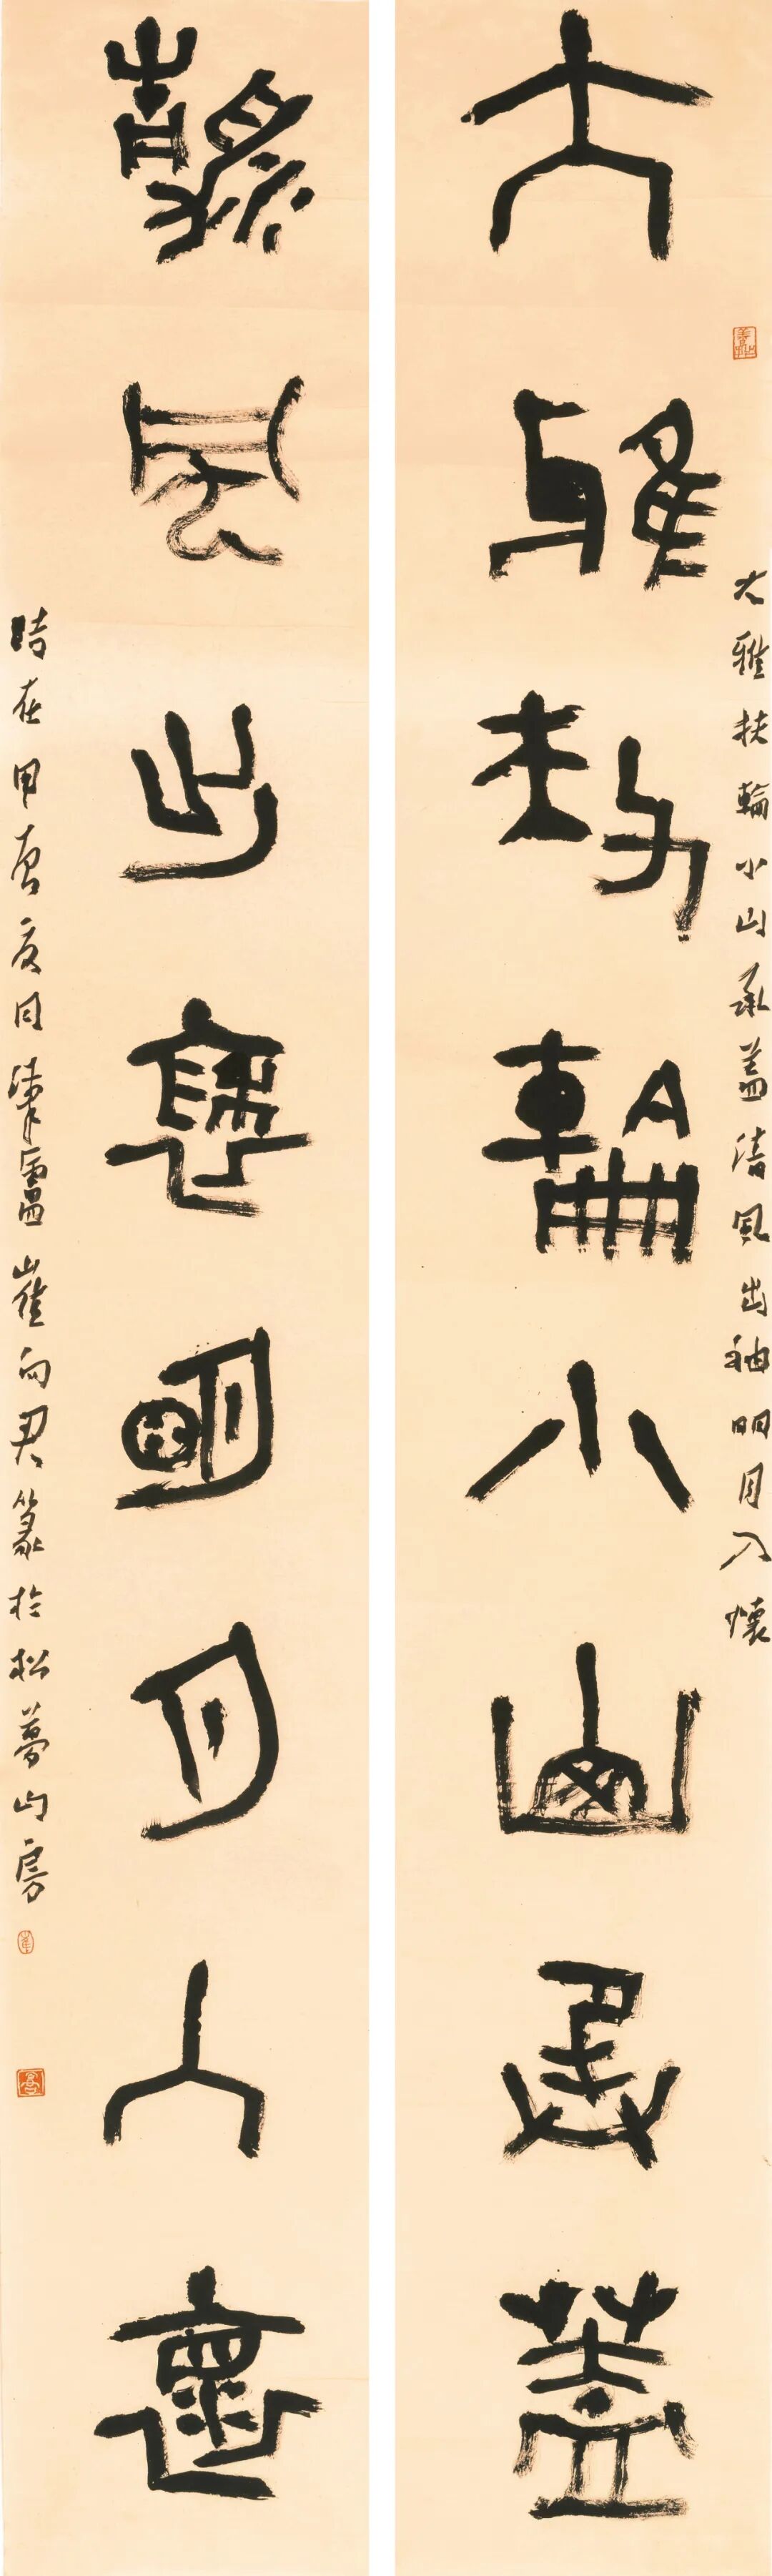 大雅扶輪小山承蓋
大雅扶輪小山承盖清風出袖明月入懷
清風出袖明月入懷
時在甲辰夏月崔向君篆於松夢山房